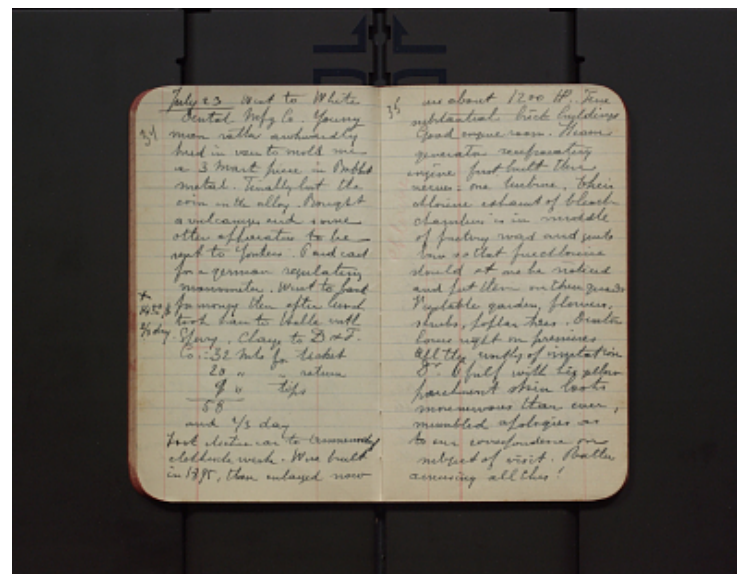 July 23 Went to White
Dental Mfg Co. Young
man rather awkwardly
tried in vain to mold me
a 3 Mark piece in Babbit
metal. Finally lost the
coin in the alloy. Bought
a vulcanizer and some
other apparatus to be
sent to Yonkers. Paid cash
for a german regulating
manometer. Went to bank
for money then after lunch
took train to Halle with
Charge to D & F.
Co. : 32 Mks for ticket
20 " " return
6 " tips
58
and 2/3 day
Took electric car to
electrolytic works. Were built
in 1895, then enlarged now
31
2/3 day
35
use about 1200 HP. Fine
substantial brick buildings
Good engine room. Steam
generator reciprocating
engine first built then
newer one turbine. Their
chlorine exhaust of bleach
chambers is in middle
of factory road and quite
low so that free chlorine
should at once be noticed
and put them on their guard
Vegetable garden, flowers,
shrubs, poplar trees. Director
lives right on premises
All the of imitation
Dr. with his yellow
parchment skin looks
more nervous than ever,
mumbled apologies as
to our correspondence on
subject of visit. Rather
amusing all this!